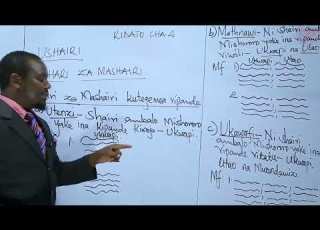 KIDATO CHA 4
USHAIRI
BAHARI ZA MASHAIRI
za Mashairi kutegemea vipande
Utenzi - Shairi ambalo Mishororo
yake ina kipande kimoja - Ukwapi
Ukwapi
1.
b) Mathnawi - Ni shairi ambalo
Mishororo yake ina vipande
viwili - Ukwapi na Utao
Mf 1) Ukwapi Utao
2.
c) Ukawafi - Ni shairi
ambalo Mishororo yake ina
vipande vitatu - Ukwapi
Utao na Mwandamizo
Mf 1